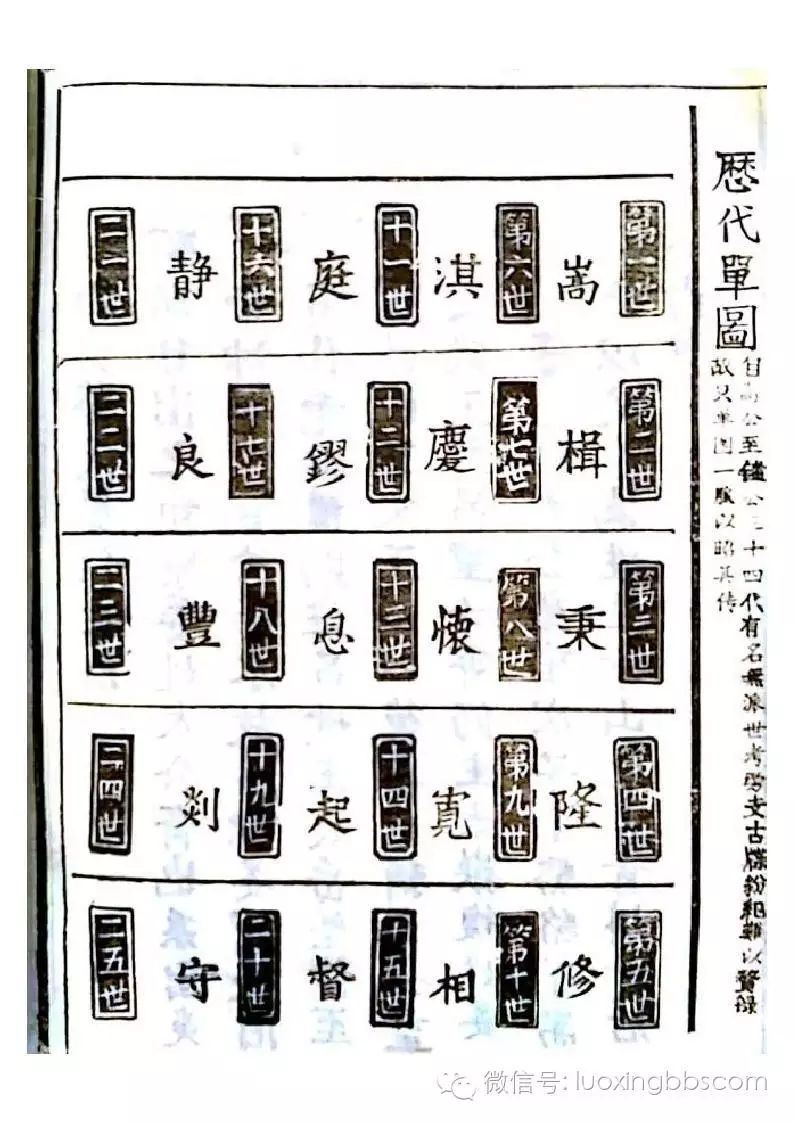 歷代單圖
自嵩公至鐘公三十四代有名無派世考歐文古牒紛紜難以贅録
故只單圖一脈以昭其传
第一世
嵩
第二世
楫
第三世
秉
第四世
隆
第五世
修
第六世
淇
第七世
慶
第八世
懐
第九世
寛
第十世
相
十一世
庭
十二世
鏐
十三世
息
十四世
起
十五世
督
十六世
静
十七世
良
十八世
豊
十九世
剡
二十世
守
二一世
二二世
二三世
二四世
二五世
微信号: luoxingbbscom